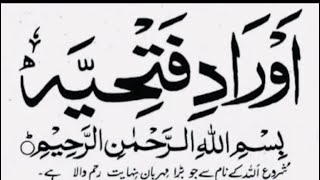 اَوْرَادِ فَتْحِیَّہ
بِسْمِ اللهِ الرَّحْمٰنِ الرَّحِیْمِ
شروع اللہ کے نام سے جو بڑا مہربان نہایت رحم والا ہے۔